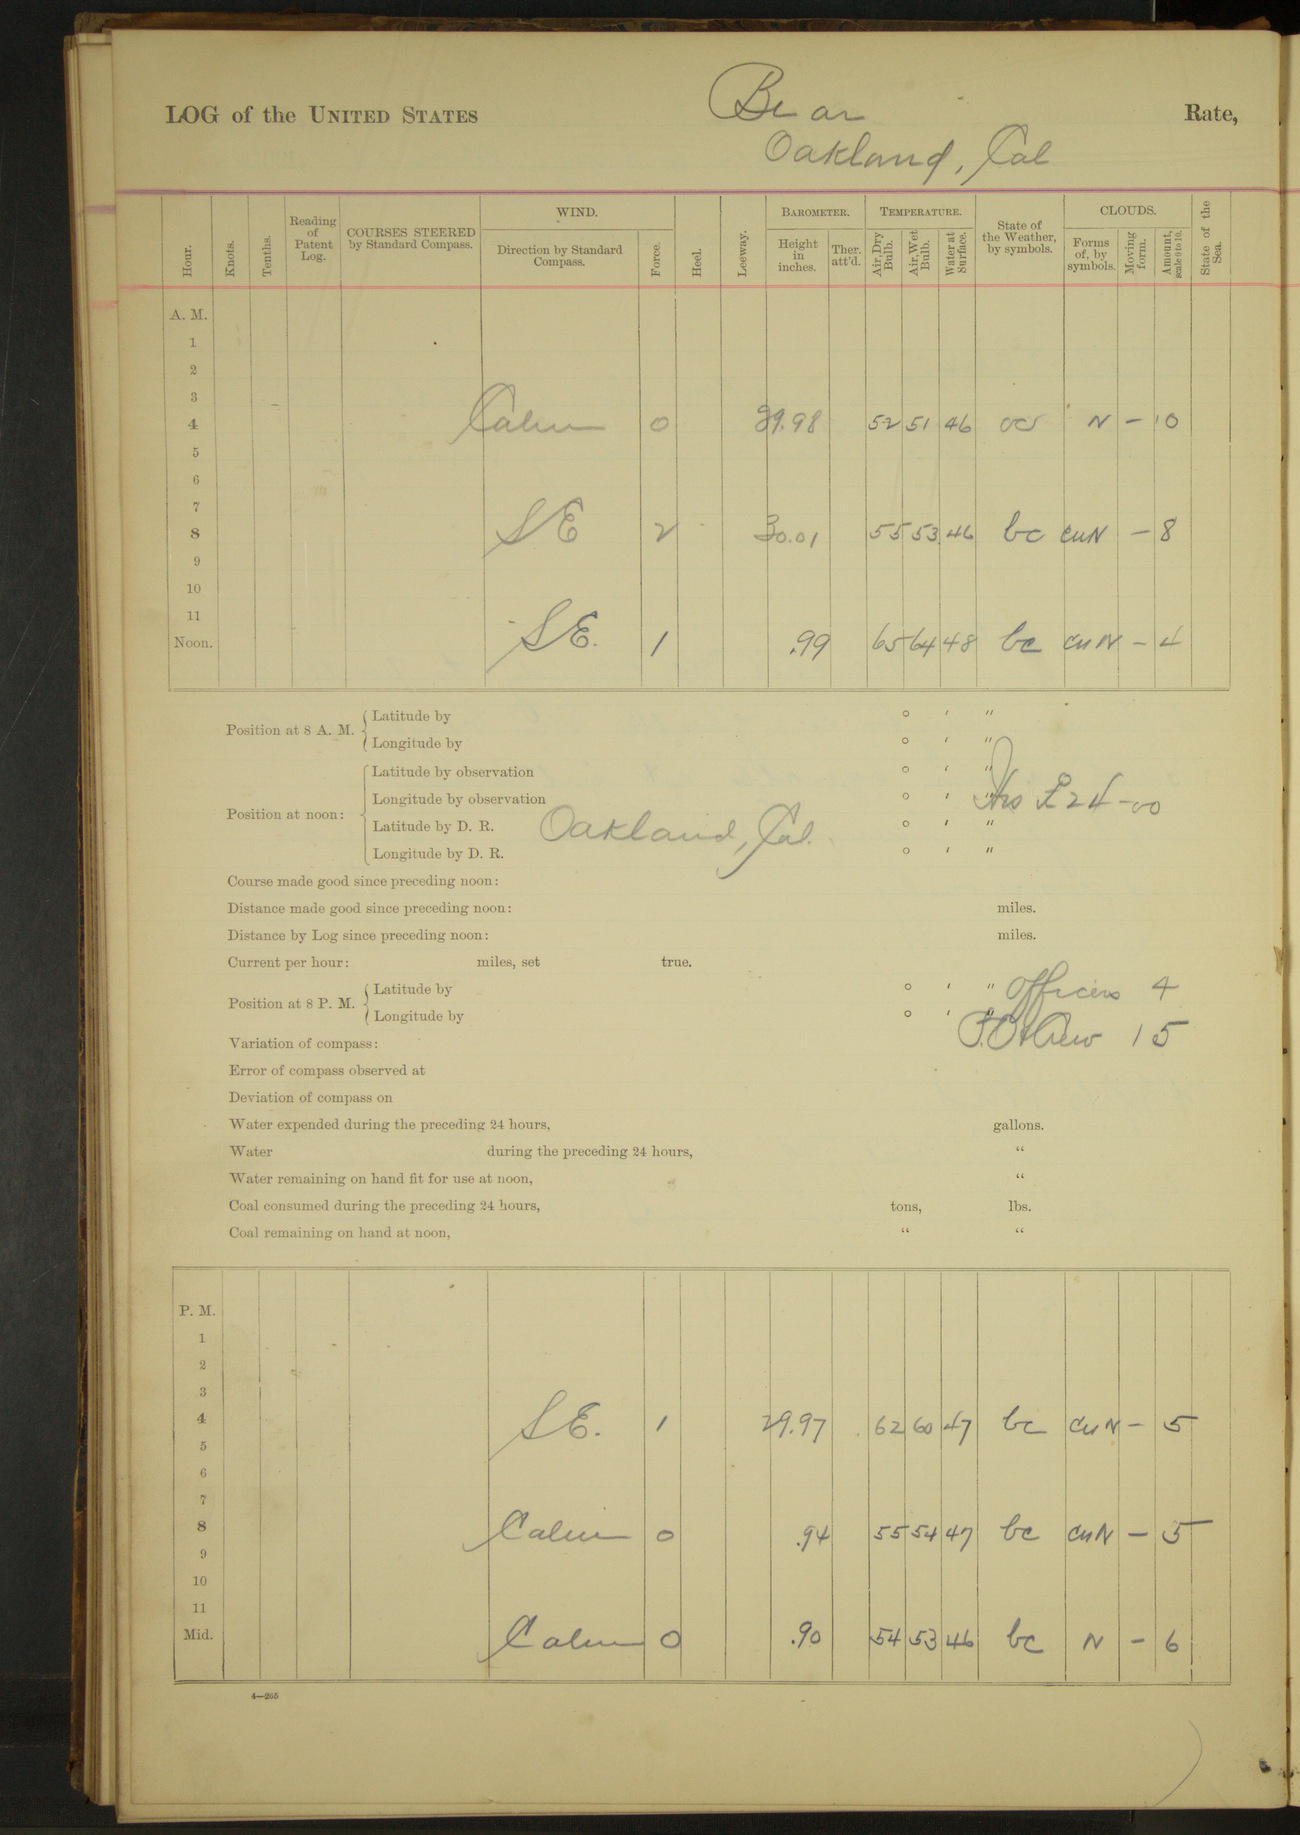 LOG of the UNITED STATES Bear Rate,
Oakland, Cal
Hour. Knots. Tenths. Reading of Patent Log. COURSES STEERED by Standard Compass. WIND. Direction by Standard Compass. Force. Heel. Leeway. BAROMETER. Height in inches. Ther. att'd. TEMPERATURE. Air, Dry Bulb. Air, Wet Bulb. Water at Surface. State of the Weather, by symbols. CLOUDS. Forms of, by symbols. Moving form. Amount, scale 0 to 10. State of the Sea.
A. M.
1
2
3
4 Calm 0 29.98 52 51 46 N - 10
5
6
7
8 SE 2 30.01 55 53 46 bc CuN - 8
9
10
11
Noon. SE. 1 .99 65 64 48 bc CuN - 4
Position at 8 A. M. Latitude by ° ′ ″
Longitude by ° ′ ″
Position at noon: Latitude by observation ° ′ ″
Longitude by observation ° ′ ″ 24-00
Latitude by D. R. Oakland, Cal. ° ′ ″
Longitude by D. R. ° ′ ″
Course made good since preceding noon:
Distance made good since preceding noon: miles.
Distance by Log since preceding noon: miles.
Current per hour: miles, set true.
Position at 8 P. M. Latitude by ° ′ ″ Officers 4
Longitude by ° ′ ″
Crew 15
Variation of compass:
Error of compass observed at
Deviation of compass on
Water expended during the preceding 24 hours, gallons.
Water during the preceding 24 hours, “
Water remaining on hand fit for use at noon, “
Coal consumed during the preceding 24 hours, tons, lbs.
Coal remaining on hand at noon, “ “
P. M.
1
2
3
4 SE. 1 29.97 62 60 47 bc CuN - 5
5
6
7
8 Calm 0 .94 55 54 47 bc CuN - 5
9
10
11
Mid. Calm 0 .90 54 53 46 bc N - 6
4—265